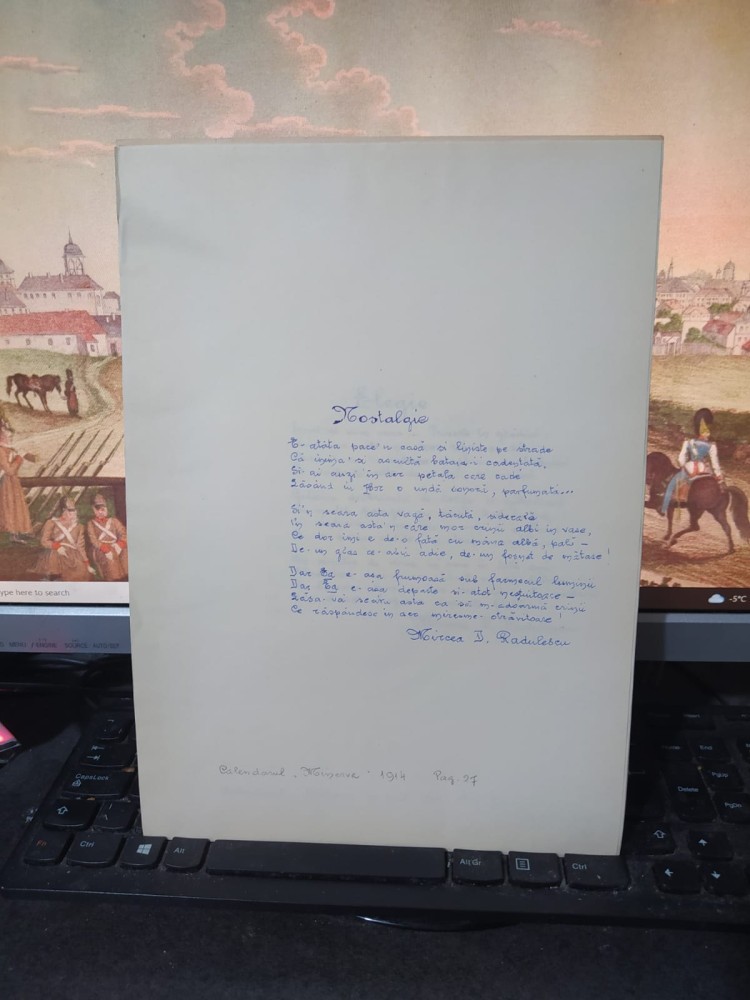 Nostalgie
E-atâta pace'n casă și liniște pe strade
Că inima'și ascultă bătaia-i cadențată,
Și-ai auzi în aer petala care cade
Lăsând în por o undă sonoră, parfumată...
Și'n seara asta vagă, tăcută, siderată
În seara asta'n care mor crinii albi în vase,
Ce dor îmi e de-o fată cu mâna albă, pală –
De-un glas ce-abia adie, de-un foșnet de mătase!
Dar Ea e-așa frumoasă sub farmecul luminii
Dar Ea e-așa departe și-atât nepăsătoare –
Lăsa-voi seara asta ca să m-adoarmă crinii
Ce răspândesc în aer miresme-otrăvitoare!
Mircea D. Radulescu
Calendarul "Minerva" 1914 Pag. 27
ype here to search
-5°C
MENU
SOURCE AUTO/SET
CapsLock
Fn
Ctrl
Alt
Alt Gr
Ctrl
End
Delete
PgUp
PgDn